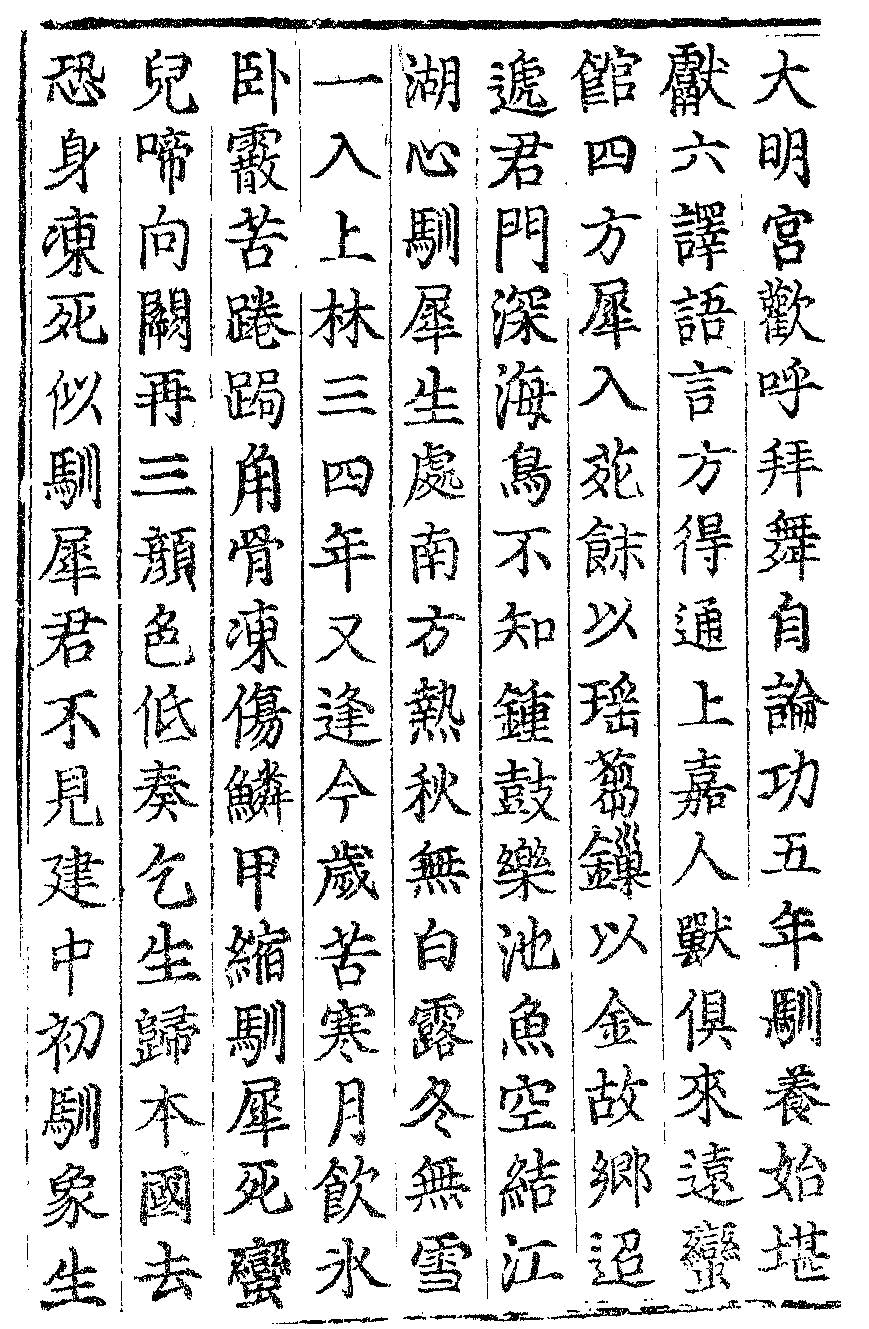 大明宮歡呼拜舞自論功五年馴養始堪
獻六譯語言方得通上嘉人獸俱來遠蠻
館四方犀入苑餗以瑶蒭鏁以金故鄉迢
遞君門深海鳥不知鍾鼓樂池魚空結江
湖心馴犀生處南方熱秋無白露冬無雪
一入上林三四年又逢今歲苦寒月飲氷
卧霰苦踡跼角骨凍傷鱗甲縮馴犀死蠻
兒啼向闕再三顔色低奏乞生歸本國去
恐身凍死似馴犀君不見建中初馴象生